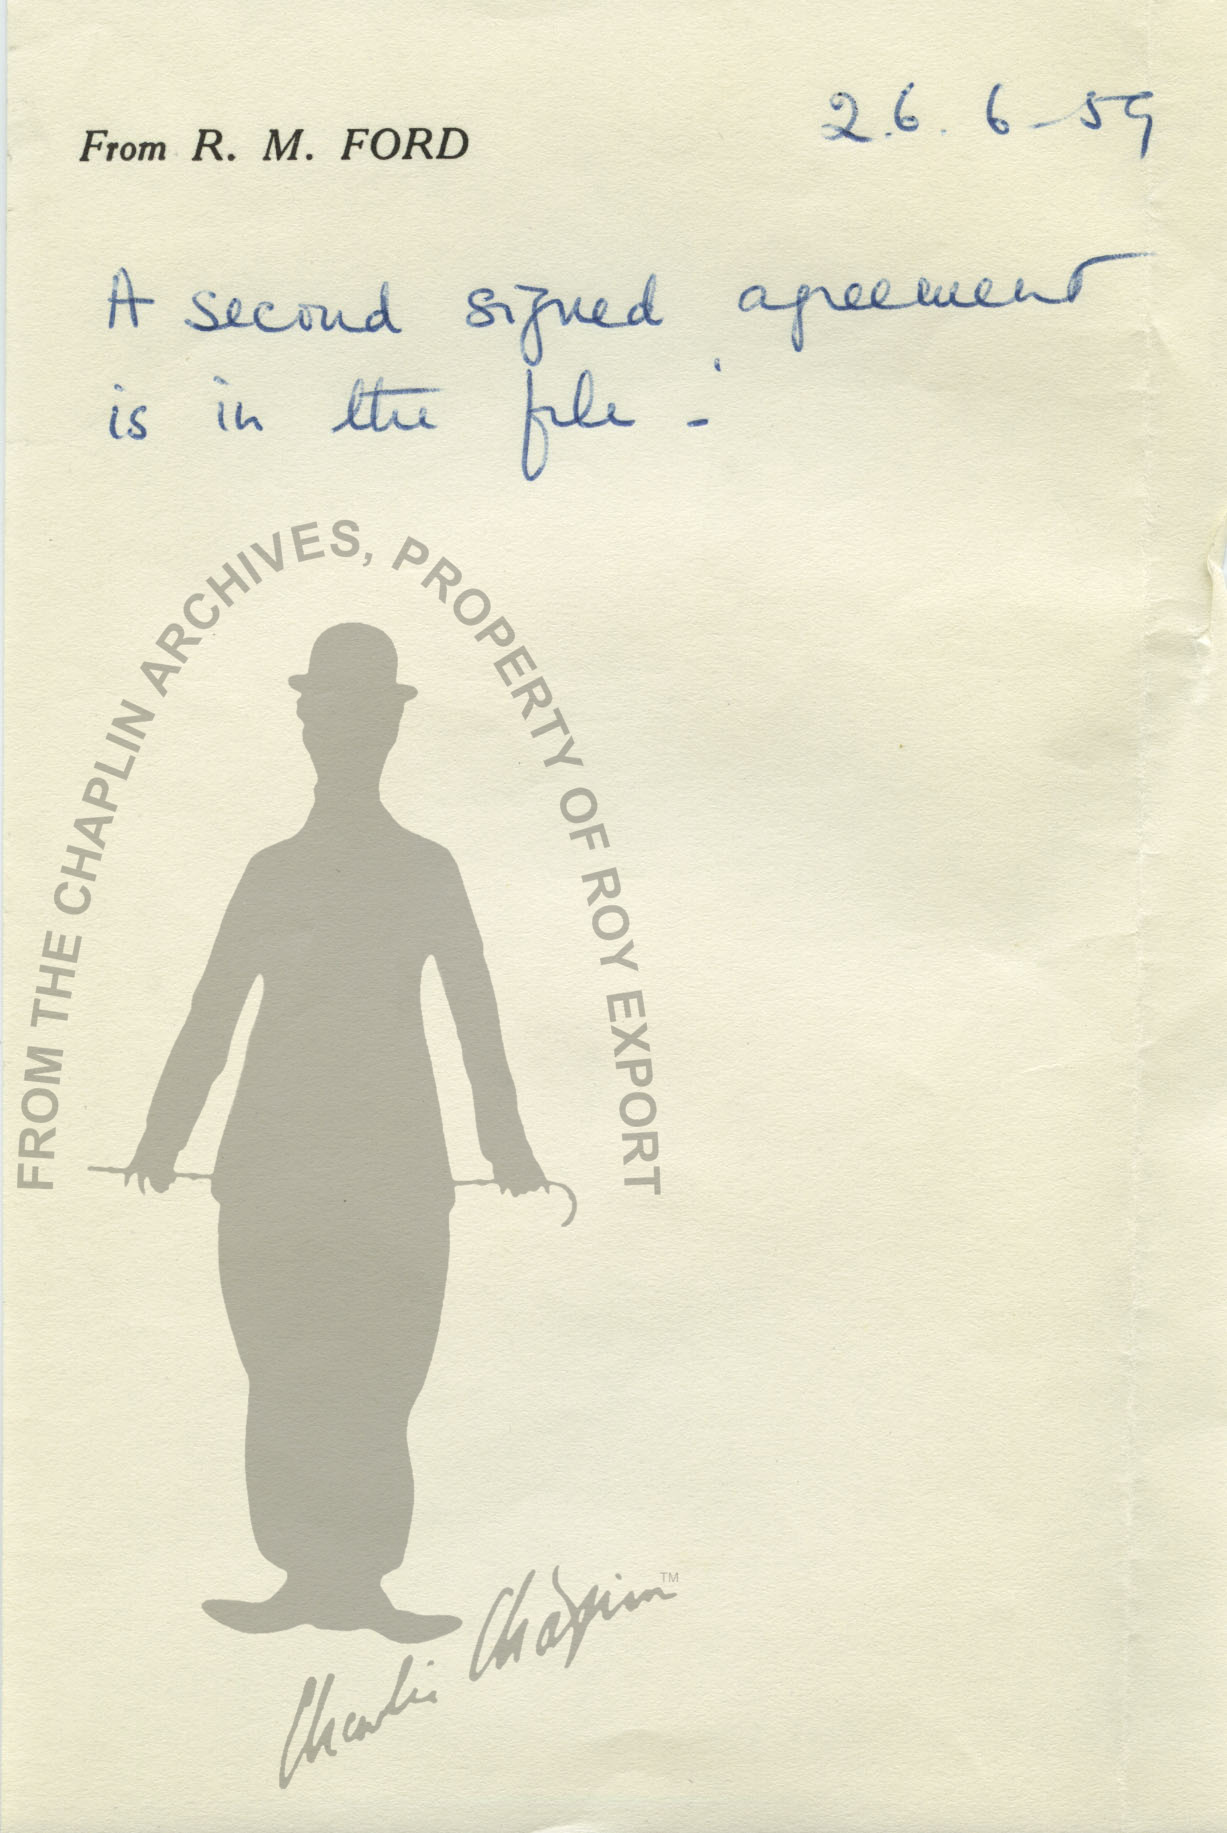 From R. M. FORD
26. 6-59
A second signed agreement
is in the file -
FROM THE CHAPLIN ARCHIVES, PROPERTY OF ROY EXPORT
Charlie Chaplin™